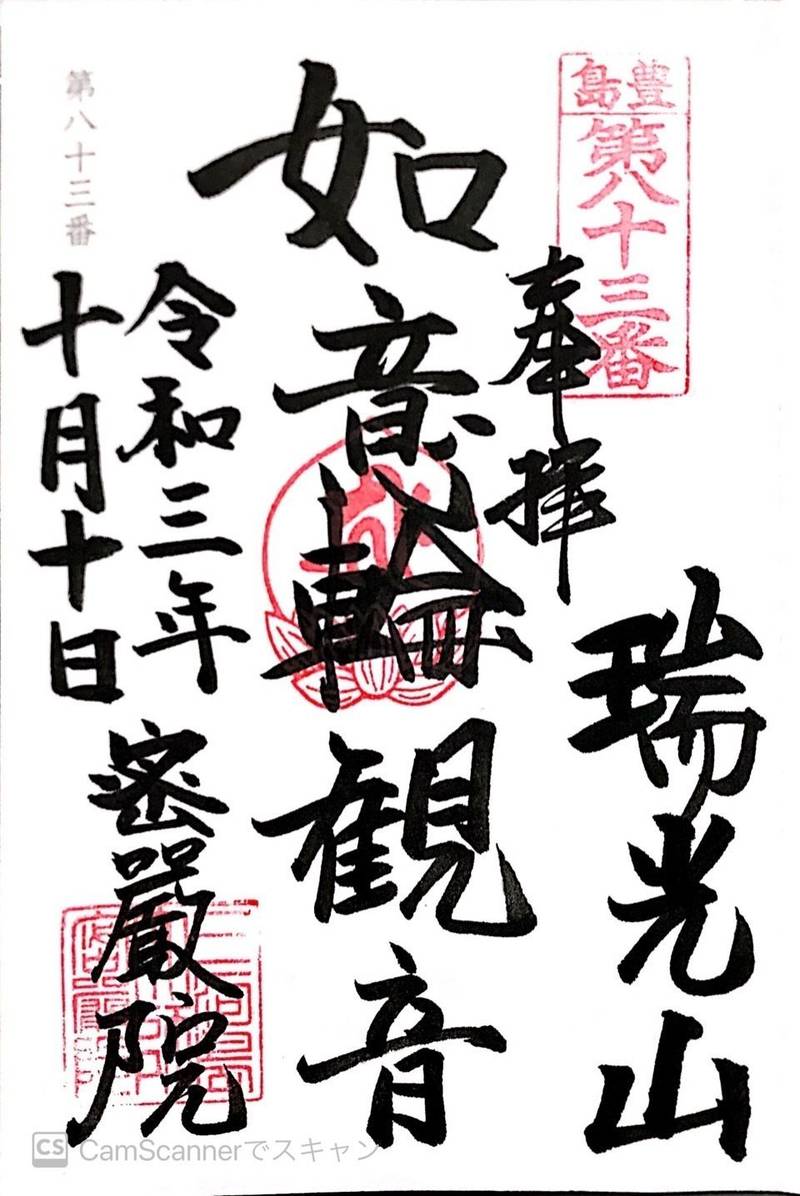 豊島
第八十三番
奉拝
瑞光山
如意輪観音
令和三年
十月十日
密厳院
第八十三番
CS CamScannerでスキャン